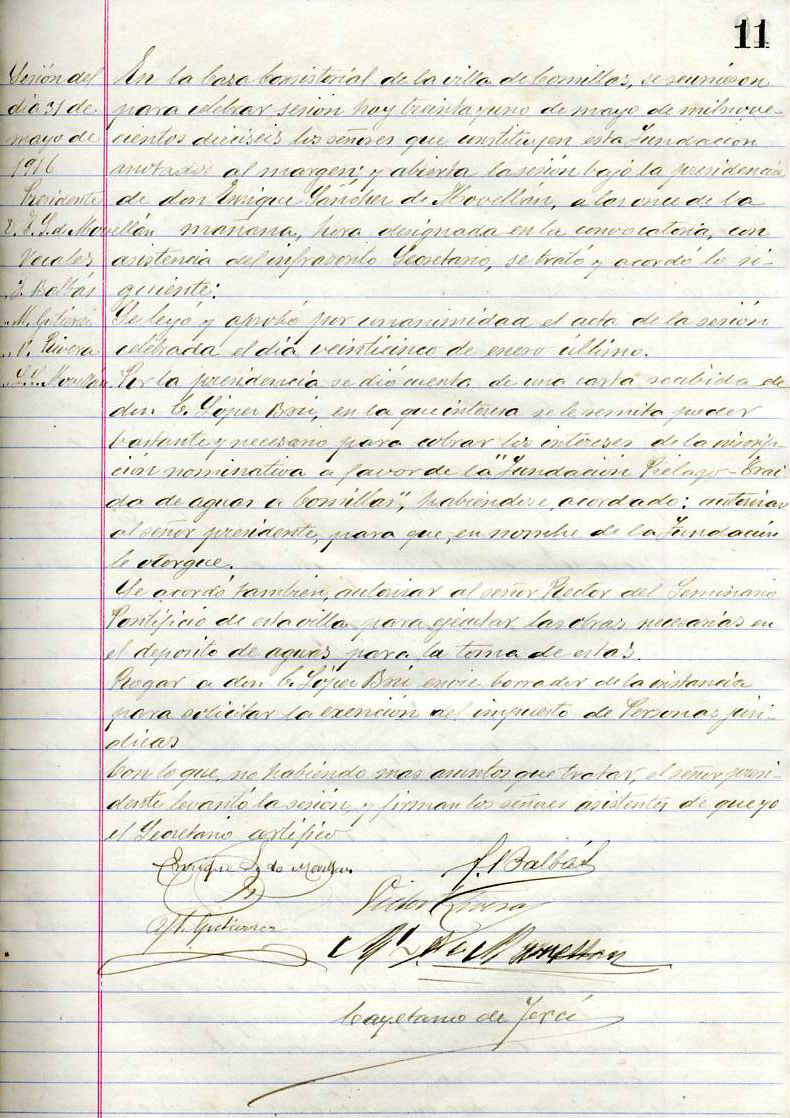 11
Sesión del
día 31 de
mayo de
1916
Presidente
E. S. de Movellán
Vocales
J. Balbás
M. Gutierrez
V. Rivera
S. Movellán
En la Casa Consistorial de la villa de Comillas, se reunieron
para celebrar sesión hoy treinta y uno de mayo de mil nove-
cientos dieciseis los señores que constituyen esta Fundación
anotados al margen; y abierta la sesión bajo la presidencia
de don Enrique Sánchez de Movellán, a las once de la
mañana, hora designada en la convocatoria, con
asistencia del infrascrito Secretario, se trató y acordó lo si-
guiente:
Se leyó y aprobó por unanimidad el acta de la sesión
celebrada el día veinticinco de enero último.
Por la presidencia se dió cuenta de una carta recibida de
don C. López Brú, en la que interesa se le remita poder
bastante y necesario para cobrar los intereses de la inscrip-
ción nominativa a favor de la "Fundación Piélago-Traí-
da de aguas a Comillas", habiéndose, acordado: autorizar
al señor presidente, para que, en nombre de la Fundación
le otorgue.
Se acordó también, autorizar al señor Rector del Seminario
Pontificio de esta villa para ejecutar las obras necesarias en
el deposito de aguas para la toma de estas.
Rogar a don C. López Brú envie borrador de la instancia
para solicitar la exención del impuesto de Personas jurí-
dicas
Con lo que, no habiendo mas asuntos que tratar, el señor presi-
dente levantó la sesión, y firman los señores asistentes de que yo
el Secretario certifico
Enrique S. de Movellan
J. Balbás
Victor Rivera
M. Gutierrez
Movellan
Cayetano de